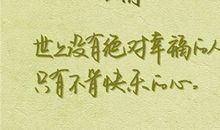 世上没有绝对幸福的人
只有不肯快乐的心。